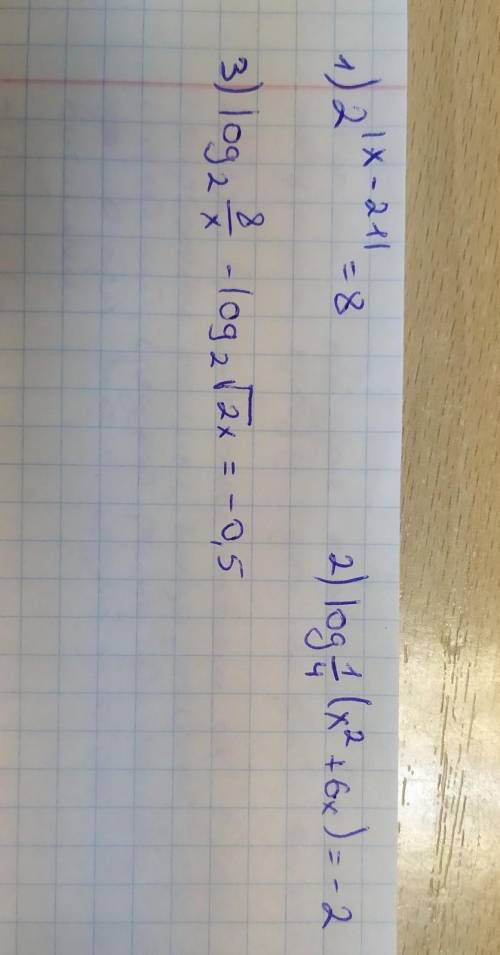 1) 2^|x - 21| = 8
2) log_{1/4} (x² + 6x) = -2
3) log₂ 8/x - log₂ √2x = -0,5